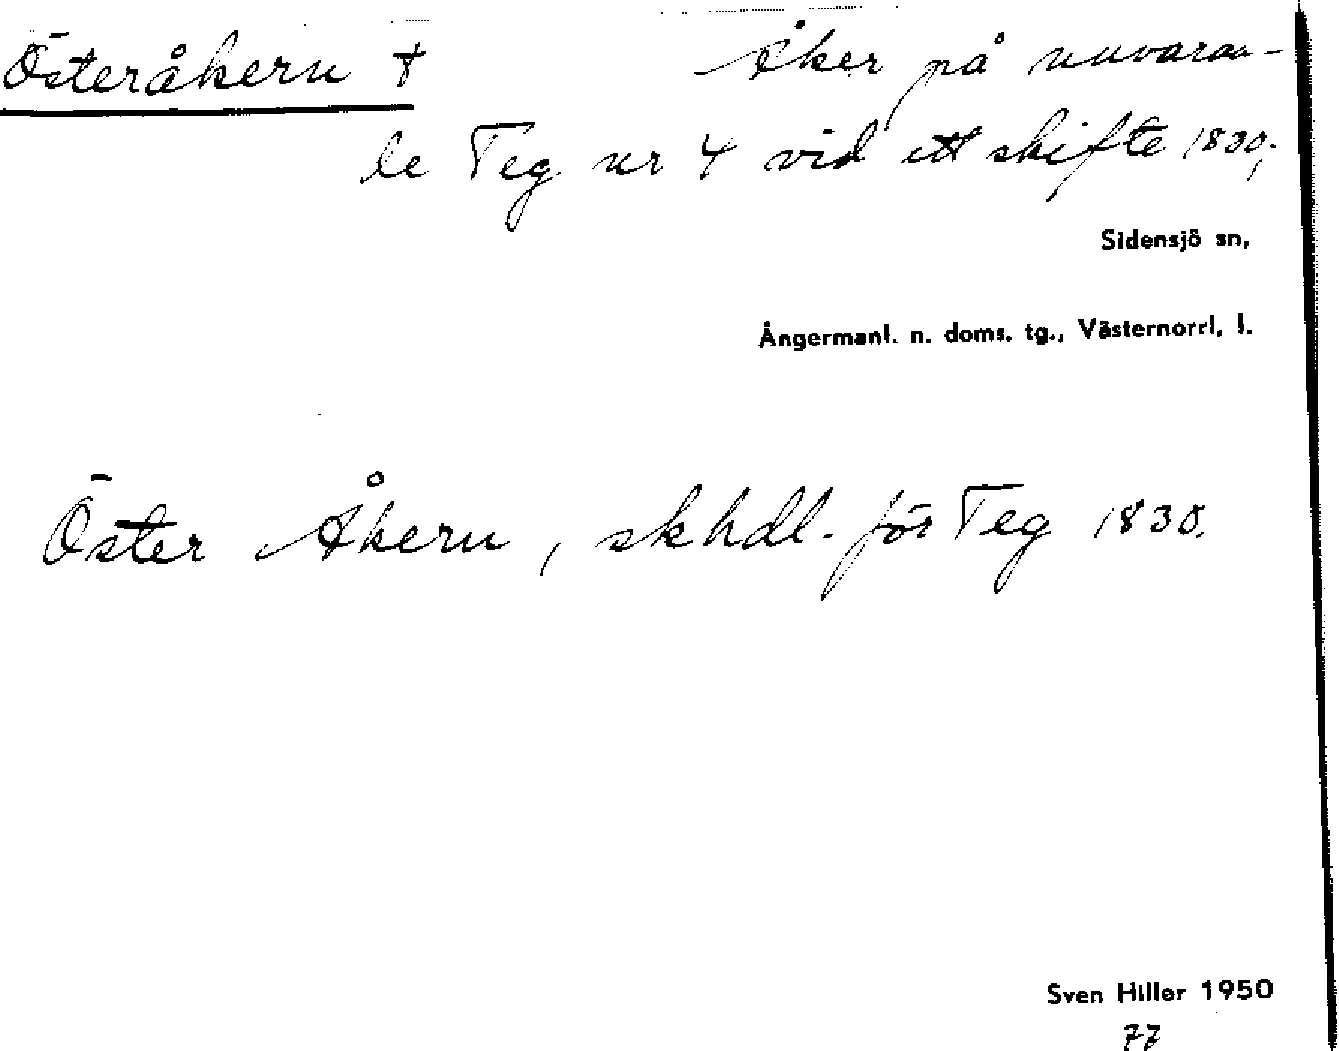 Österåkern † Åker på nuvaran-
de Teg nr 4 vid ett skifte 1830;
Sidensjö sn,
Ångermanl. n. doms. tg., Västernorrl. l.
Öster Åkern, skhdl. för Teg 1830.
Sven Hiller 1950
77